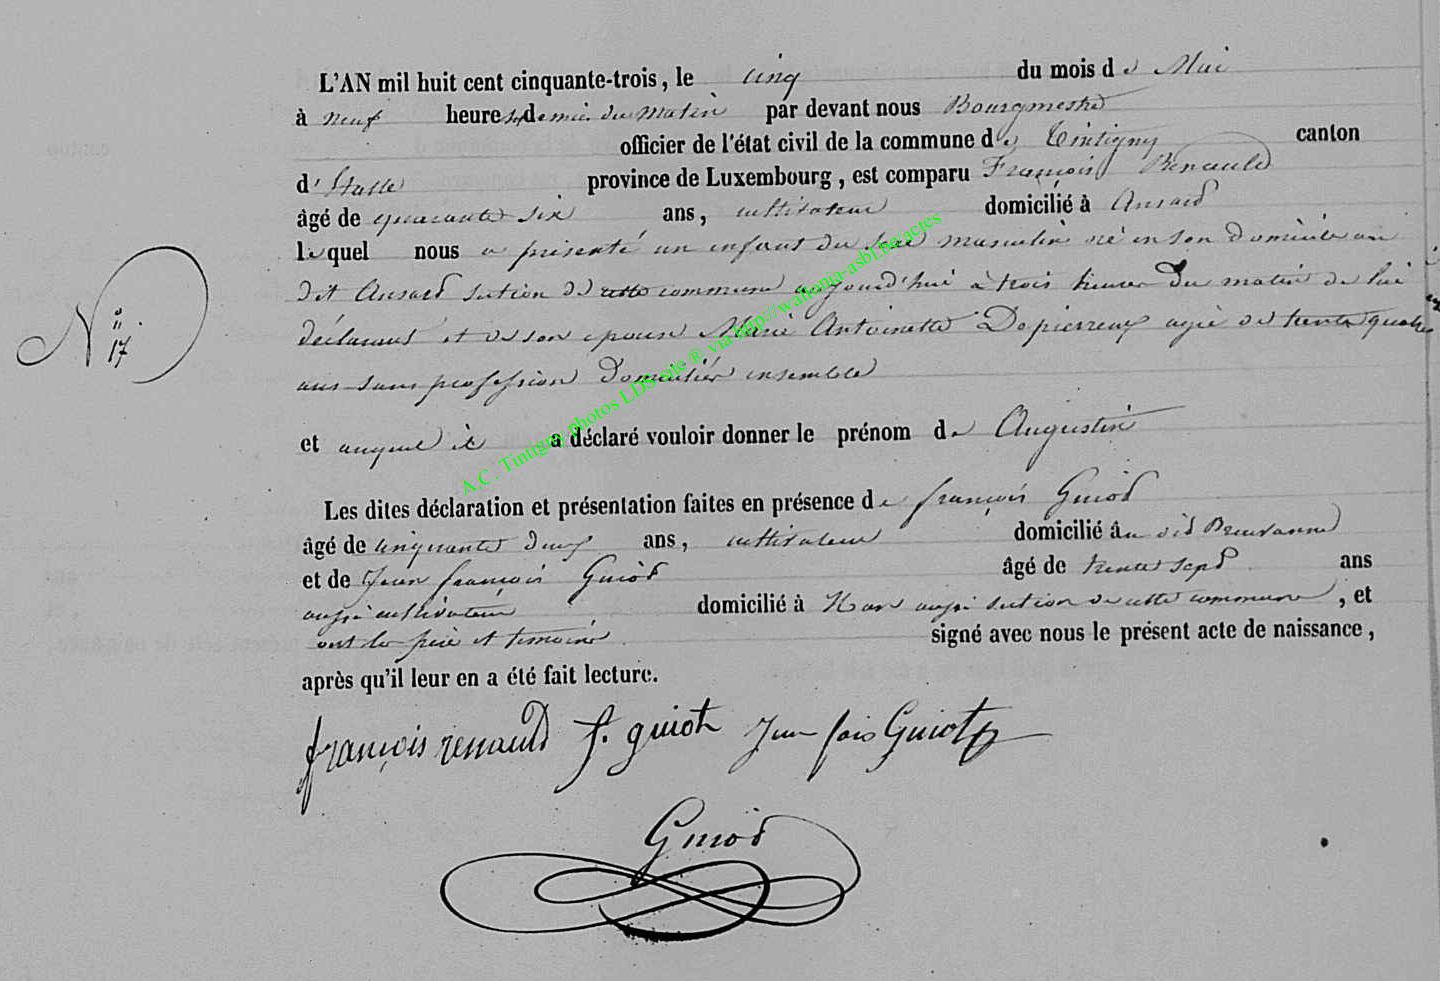 L'AN mil huit cent cinquante-trois, le cinq du mois de Mai
à neuf heures & demie du matin par devant nous Bourgmestre
officier de l'état civil de la commune de Tintigny canton
d'Etalle province de Luxembourg, est comparu François Renauld
âgé de quarante six ans, cultivateur domicilié à Ansard
lequel nous a présenté un enfant du sexe masculin né en son domicile au
dit Ansard section de cette commune aujourd'hui à trois heures du matin de lui
déclarant et de son épouse Marie Antoinette Depierreux agée de trente quatre
ans sans profession domiciliés ensemble
N° 17
et auquel il a déclaré vouloir donner le prénom de Augustin
Les dites déclaration et présentation faites en présence de françois Guiot
âgé de cinquante deux ans, cultivateur domicilié âu dit Breuvanne
et de Jean françois Guiot âgé de trente sept ans
aussi cultivateur domicilié à Han aussi section de cette commune, et
ont les père et temoins signé avec nous le présent acte de naissance,
après qu'il leur en a été fait lecture.
françois renauld f. guiot Jean fois Guiot
Guiot
A.C. Tintigny photos LDS site ® via http://wallonia-asbl.be/actes